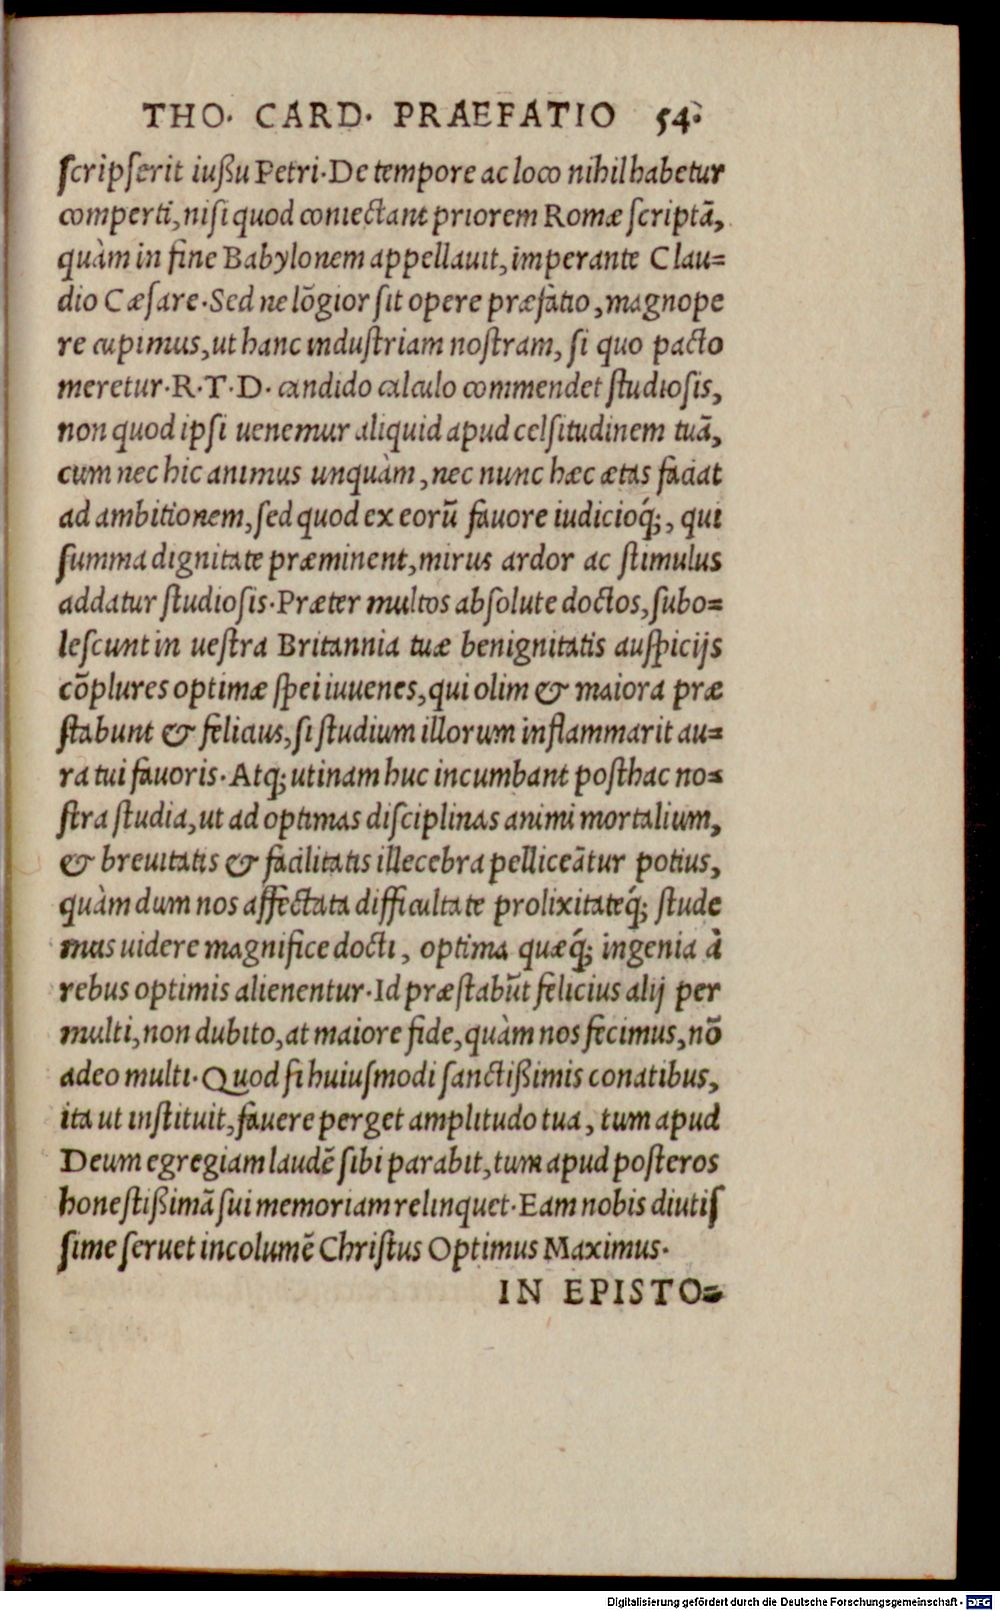 THO. CARD. PRAEFATIO 54.
ſcripſerit iußu Petri. De tempore ac loco nihil habetur
comperti, niſi quod coniectant priorem Romæ ſcriptā,
quàm in fine Babylonem appellauit, imperante Clau=
dio Cæſare. Sed ne lõgior ſit opere præfatio, magnope
re cupimus, ut hanc induſtriam noſtram, ſi quo pacto
meretur. R. T. D. candido calculo commendet ſtudioſis,
non quod ipſi uenemur aliquid apud celſitudinem tuā,
cum nec hic animus unquàm, nec nunc hæc ætas faciat
ad ambitionem, ſed quod ex eorū fauore iudicioq́;, qui
ſumma dignitate præminent, mirus ardor ac ſtimulus
addatur ſtudioſis. Præter multos abſolute doctos, ſubo=
leſcunt in ueſtra Britannia tuæ benignitatis auſpicijs
cõplures optimæ ſpei iuuenes, qui olim & maiora præ
ſtabunt & felicius, ſi ſtudium illorum inflammarit au=
ra tui fauoris. Atq; utinam huc incumbant poſthac no=
ſtra ſtudia, ut ad optimas diſciplinas animi mortalium,
& breuitatis & facilitatis illecebra pelliceātur potius,
quàm dum nos affectata difficultate prolixitateq́; ſtude
mus uidere magnifice docti, optima quæq́; ingenia à
rebus optimis alienentur. Id præſtabūt felicius alij per
multi, non dubito, at maiore fide, quàm nos fecimus, nõ
adeo multi. Quod ſi huiuſmodi ſanctißimis conatibus,
ita ut inſtituit, fauere perget amplitudo tua, tum apud
Deum egregiam laudē ſibi parabit, tum apud poſteros
honeſtißimā ſui memoriam relinquet. Eam nobis diutiſ
ſime ſeruet incolumē Chriſtus Optimus Maximus.
IN EPISTO=
Digitalisierung gefördert durch die Deutsche Forschungsgemeinschaft - DFG